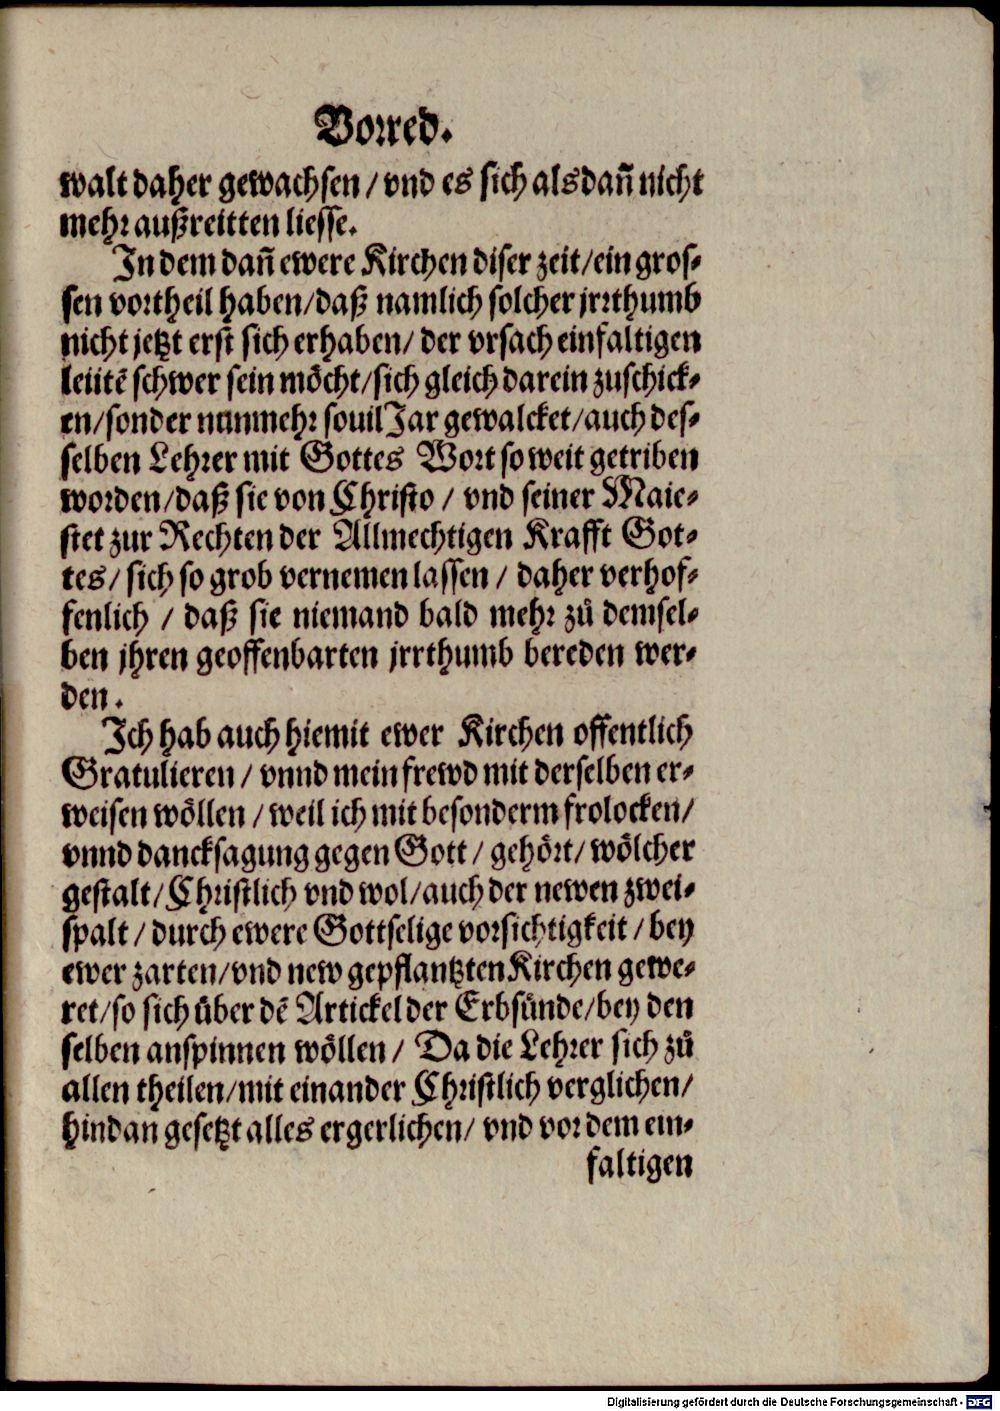 Vorred.
walt daher gewachsen / vnd es sich alsdañ nicht
mehr außreitten liesse.
In dem dañ ewere Kirchen diser zeit / ein gros-
sen vortheil haben / daß namlich solcher jrrthumb
nicht jetzt erst sich erhaben / der vrsach einfaltigen
leütẽ schwer sein möcht / sich gleich darein zuschick-
en / sonder nunmehr souil Jar gewalcket / auch des-
selben Lehrer mit Gottes Wort so weit getriben
worden / daß sie von Christo / vnd seiner Maie-
stet zur Rechten der Allmechtigen Krafft Got-
tes / sich so grob vernemen lassen / daher verhof-
fenlich / daß sie niemand bald mehr zů demsel-
ben jhren geoffenbarten jrrthumb bereden wer-
den.
Ich hab auch hiemit ewer Kirchen offentlich
Gratulieren / vnnd mein frewd mit derselben er-
weisen wöllen / weil ich mit besonderm frolocken /
vnnd dancksagung gegen Gott / gehört / wölcher
gestalt / Christlich vnd wol / auch der newen zwei-
spalt / durch ewere Gottselige vorsichtigkeit / bey
ewer zarten / vnd new gepflantzten Kirchen gewe-
ret / so sich über dẽ Artickel der Erbsünde / bey den
selben anspinnen wöllen / Da die Lehrer sich zů
allen theilen / mit einander Christlich verglichen /
hindan gesetzt alles ergerlichen / vnd vor dem ein-
faltigen
Digitalisierung gefördert durch die Deutsche Forschungsgemeinschaft - DFG